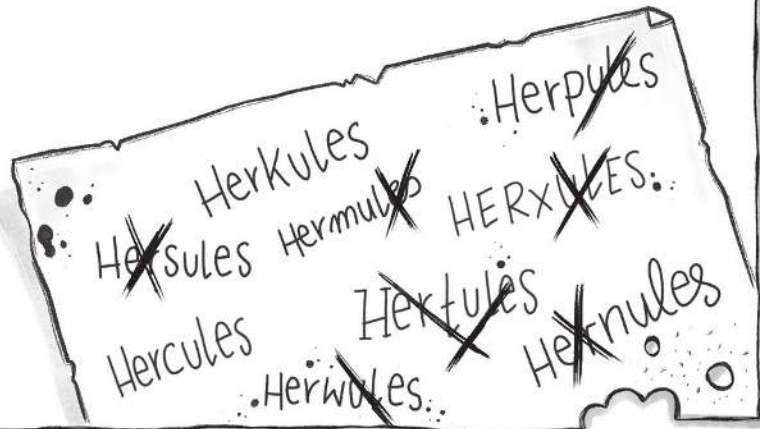 Herpules
HerKules
Hermules
HERXULES
Hersules
Hertules
Hernules
Hercules
Herwules